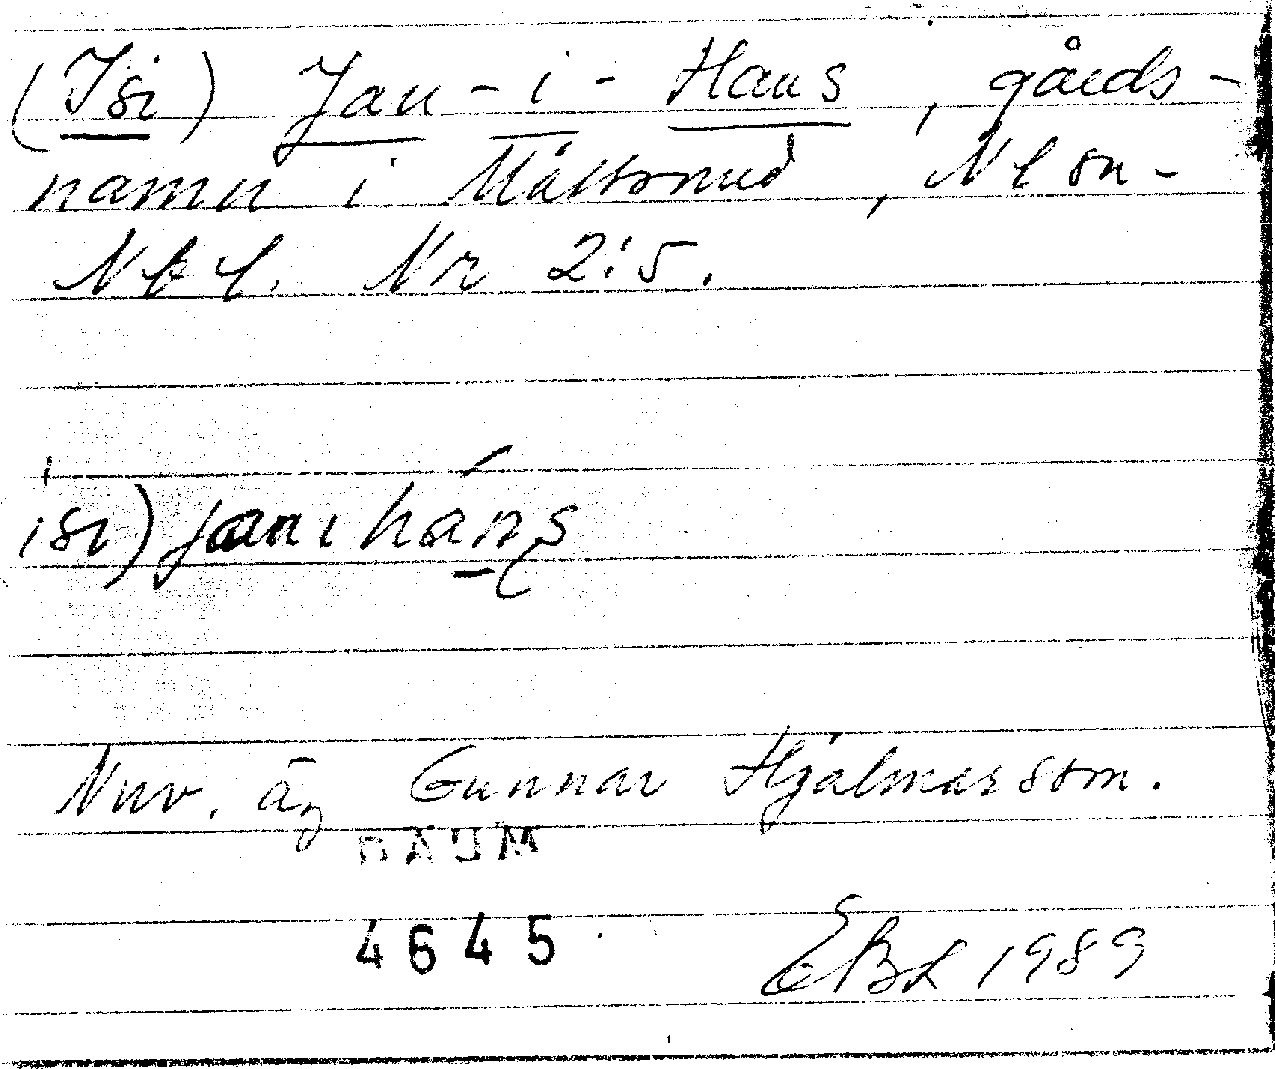 (Isi) Jan-i-Hans, gårds-
namn i Måttsund, Nl sn-
Nbl. Nr 2:5.
isi) janihans
Nuv. äg Gunnar Hjalmarsson.
DAUM
4645
EBL 1989